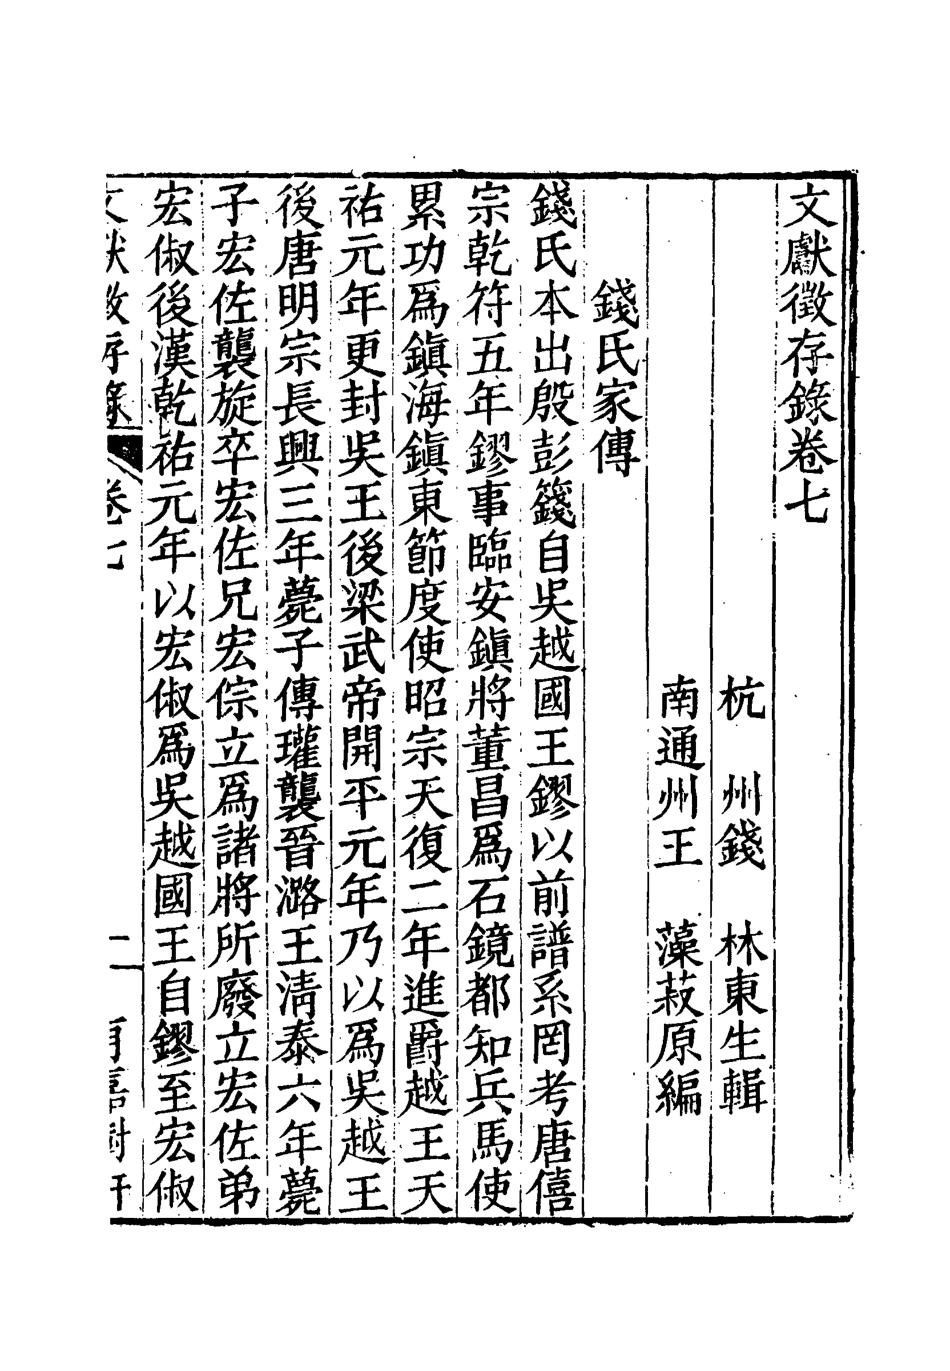 文獻徵存錄卷七
杭　州錢　林東生輯
南通州王　藻菽原編
錢氏家傳
錢氏本出殷彭籛自吳越國王鏐以前譜系罔考唐僖
宗乾符五年鏐事臨安鎭將董昌爲石鏡都知兵馬使
累功爲鎭海鎭東節度使昭宗天復二年進爵越王天
祐元年更封吳王後梁武帝開平元年乃以爲吳越王
後唐明宗長興三年薨子傳瓘襲晉潞王淸泰六年薨
子宏佐襲旋卒宏佐兄宏倧立爲諸將所廢立宏佐弟
宏俶後漢乾祐元年以宏俶爲吳越國王自鏐至宏俶
文獻徵存錄　卷七　二　有嘉樹軒